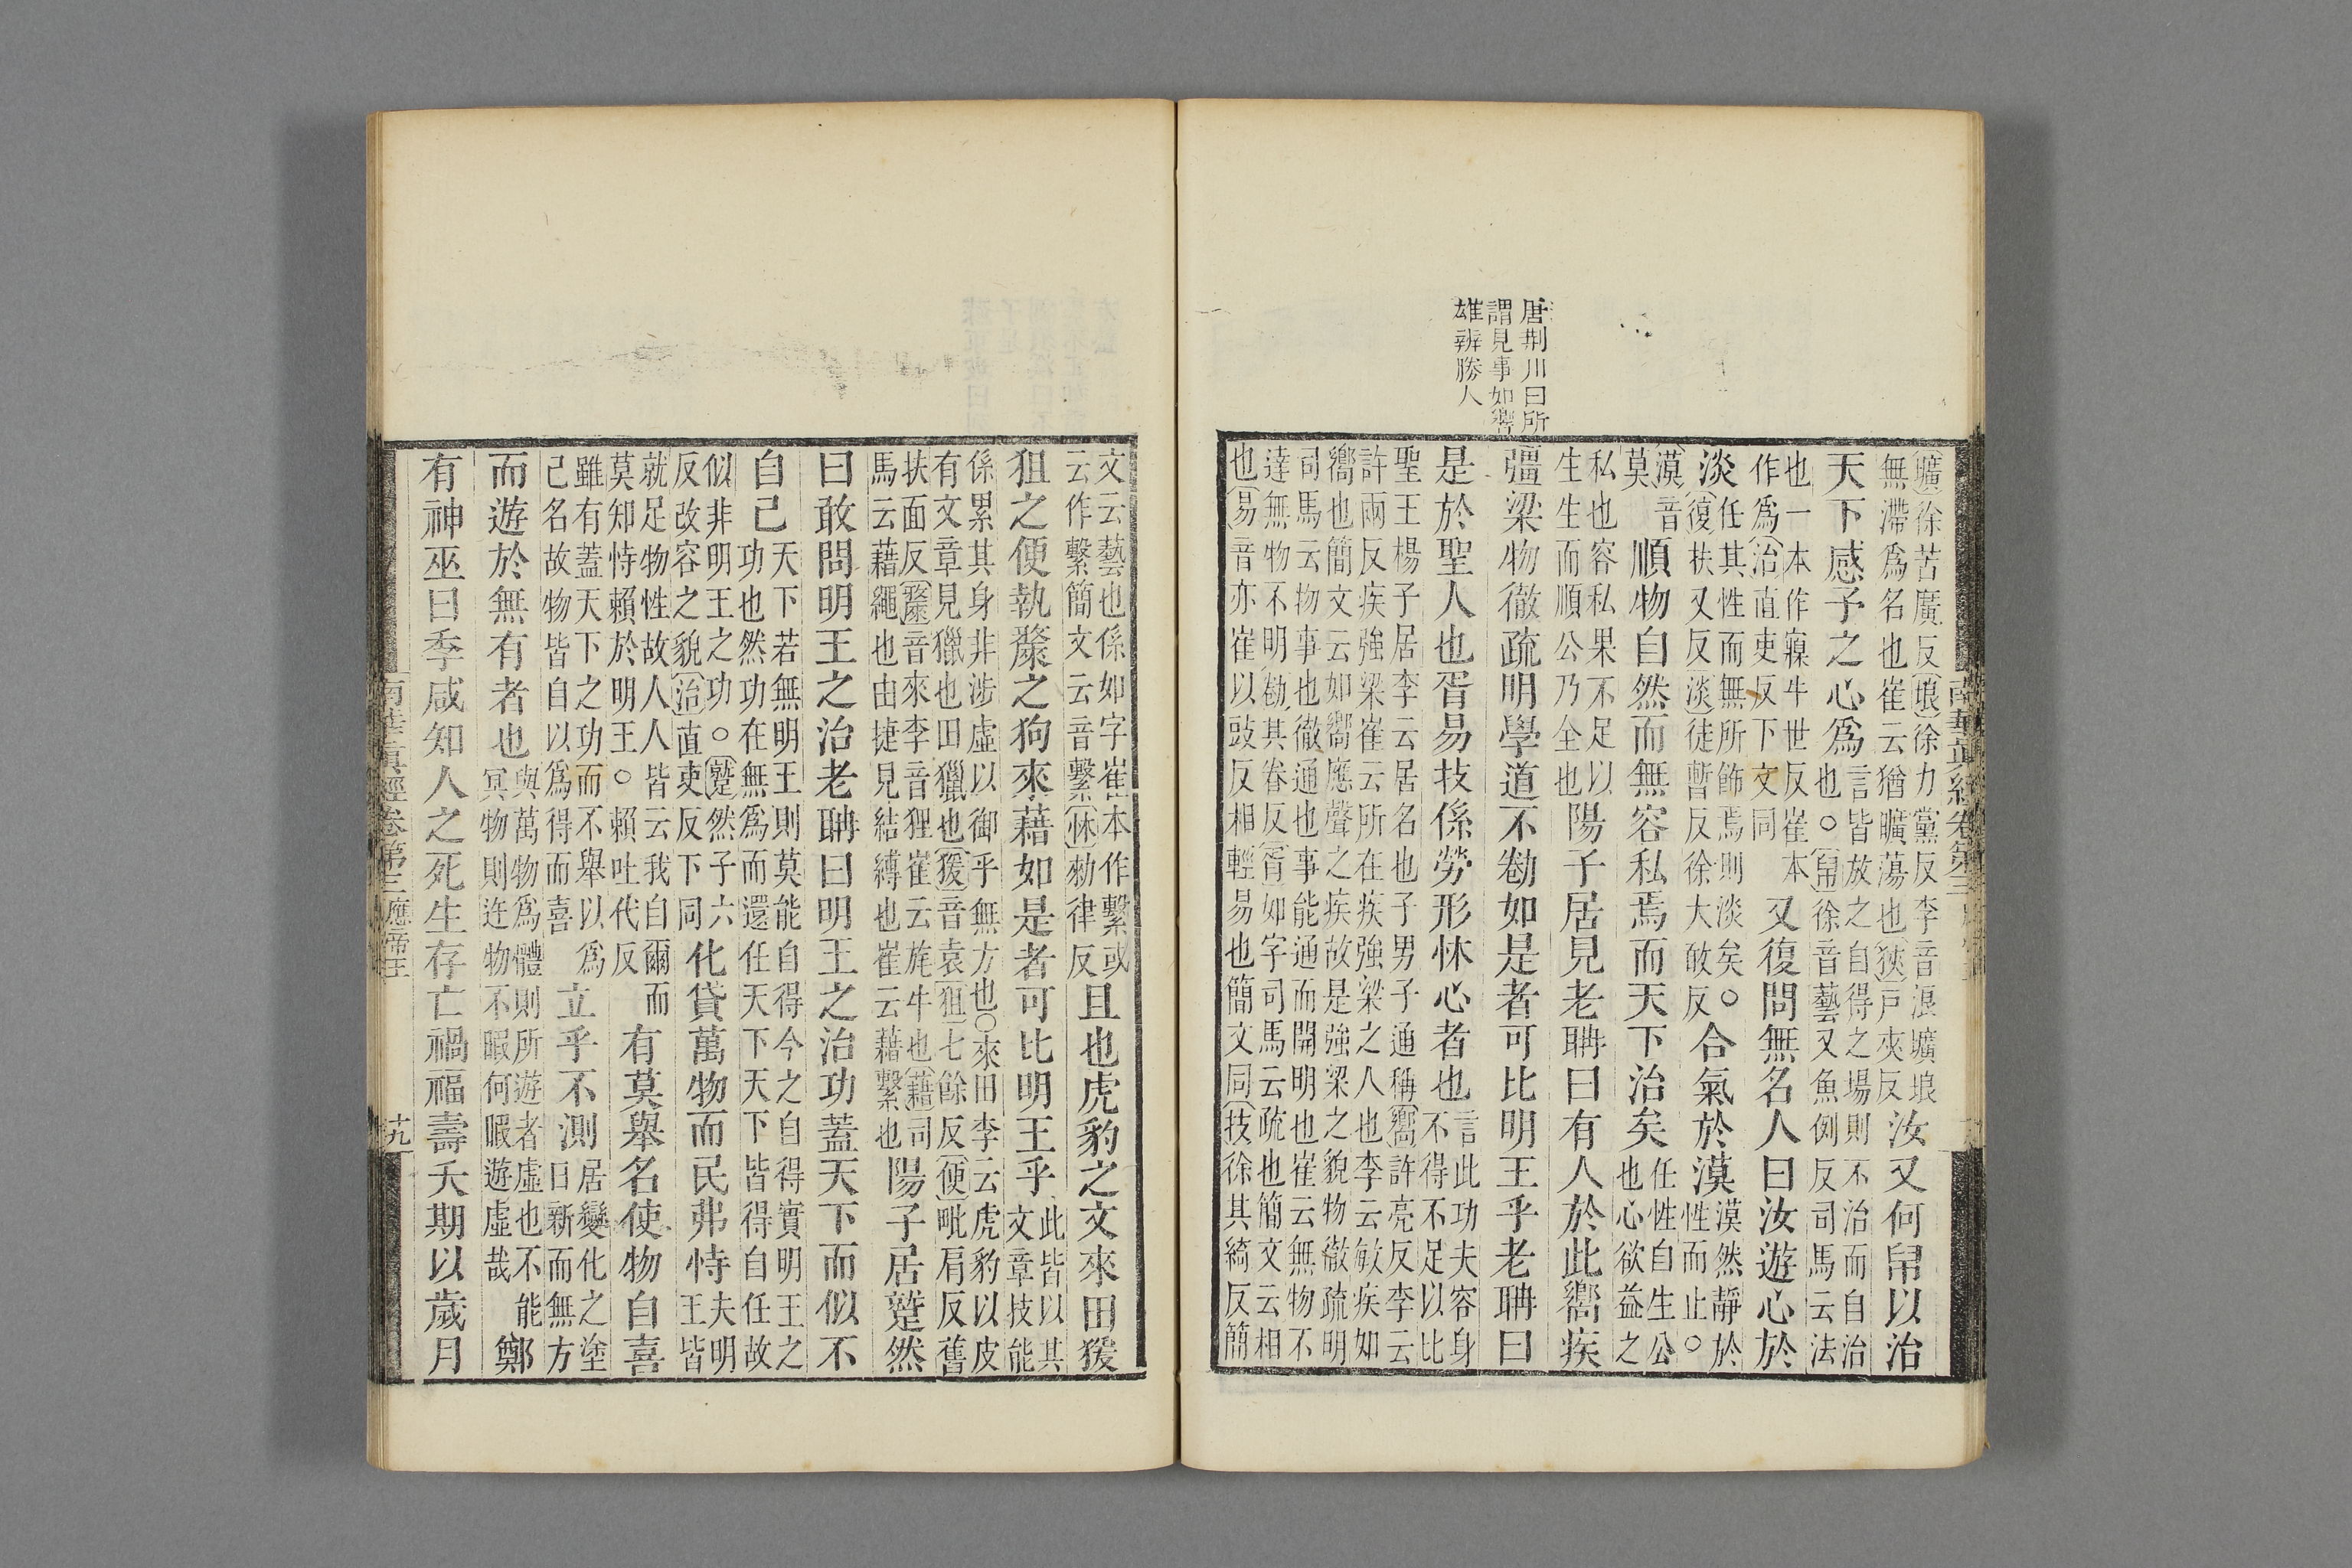 唐荆川曰所
謂見事如嚮
雄辨勝人
南華真經卷第三
壙徐苦廣反埌徐力黨反李音浪壙埌
無滯爲名也崔云猶曠蕩也狹戸夾反
汝又何帠以治
天下感予之心爲
言皆放之自得之場則不治而自治
也○帠徐音藝又魚例反司馬云法
也一本作寱牛世反崔本
作爲治直吏反下文同
又復問無名人曰汝遊心於
淡
任其性而無所飾焉則淡矣○
復扶又反淡徒暫反徐大敢反
合氣於漠
漠然靜於
性而止○
漠音
莫
順物自然而無容私焉而天下治矣
任性自生公
也心欲益之
私也容私果不足以
生生而順公乃全也
陽子居見老聃曰有人於此嚮疾
彊梁物徹疏明學道不勌如是者可比明王乎老聃曰
是於聖人也胥易技係勞形怵心者也
言此功夫容身
不得不足以比
聖王楊子居李云居名也子男子通稱嚮許亮反李云
許兩反疾強梁崔云所在疾強梁之人也李云敏疾如
嚮也簡文云如嚮應聲之疾故是強梁之貌物徹疏明
司馬云物事也徹通也事能通而開明也崔云無物不
達無物不明勌其眷反胥如字司馬云疏也簡文云相
也易音亦崔以豉反相輕易也簡文同技徐其綺反簡
文云藝也係如字崔本作繫或
云作繫簡文云音繫怵勑律反
且也虎豹之文來田猨
狙之便執斄之狗來藉如是者可比明王乎
此皆以其
文章技能
係累其身非涉虛以御乎無方也○來田李云虎豹以皮
有文章見獵也田獵也猨音袁狙七餘反便毗肩反舊
扶面反斄音來李音狸崔云旄牛也藉司
馬云藉繩也由捷見結縛也崔云藉繫也
陽子居蹵然
曰敢問明王之治老聃曰明王之治功蓋天下而似不
自己
天下若無明王則莫能自得今之自得實明王之
功也然功在無爲而還任天下天下皆得自任故
似非明王之功○蹵然子六
反改容之貌治直吏反下同
化貸萬物而民弗恃
夫明
王皆
就足物性故人人皆云我自爾而
莫知恃賴於明王○賴吐代反
有莫舉名使物自喜
雖有蓋天下之功而不舉以爲
己名故物皆自以爲得而喜
立乎不測
居變化之塗
日新而無方
而遊於無有者也
與萬物爲體則所遊者虛也不能
冥物則迕物不暇何暇遊虛哉
鄭
有神巫曰季咸知人之死生存亡禍福壽夭期以歲月
南華真經卷第三 應帝王
十九